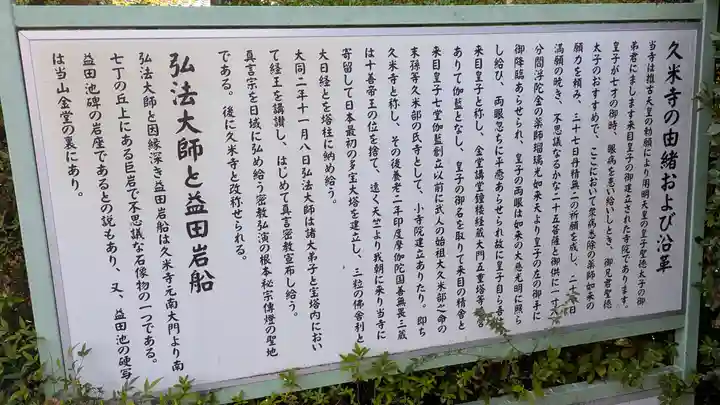 久米寺の由緒および沿革
当寺は推古天皇の勅願により用明天皇の皇子聖徳太子の御
弟君にまします来目皇子の御建立された寺院であります。
皇子が七才の御時、眼病を患い給いしとき、御兄君聖徳
太子のおすすめで、ここにおいて衆病悉除の薬師如来の
願力を頼み、三十七日丹精無二の祈願を成し、二十一日
満願の暁き、不思議なるかな二十五菩薩と御供に一寸八
分閻浮陀金の薬師瑠璃光如来天より皇子の左の御手に
御降臨あらせられ、皇子の両眼は如来の大慈光明に照ら
し給ひ、両眼忽ちに平癒あらせられ故に皇子自ら吾
来目皇子と称し、金堂講堂鐘楼経蔵大門五重塔等
ありて伽藍となし、皇子の御名を取りて来目の精舎と
来目皇子七堂伽藍創立以前に武人の始祖大久米部之命の
末孫等久米部の氏寺として、小寺院建立ありたり。即ち
久米寺と称し、その後養老二年印度摩伽陀国善無畏三蔵
は十善帝王の位を捨て、遠く天竺より我朝に来り当寺に
寄留して日本最初の多宝大塔を建立し、三粒の佛舎利と
大日経とを塔柱に納め給う。
大同二年十一月八日弘法大師は諸大弟子と宝塔内におい
て経王を講讃し、はじめて真言密教宣布し給う。
真言宗を日域に弘め給う密教弘演の根本秘宗傳燈の聖地
である。後に久米寺と改称せられる。
弘法大師と益田岩船
弘法大師と因縁深き益田岩船は久米寺元南大門より南
七丁の丘上にある巨岩で不思議な石像物の一つである。
益田池碑の岩座であるとの説もあり、又、益田池の碑写
は当山金堂の裏にあり。